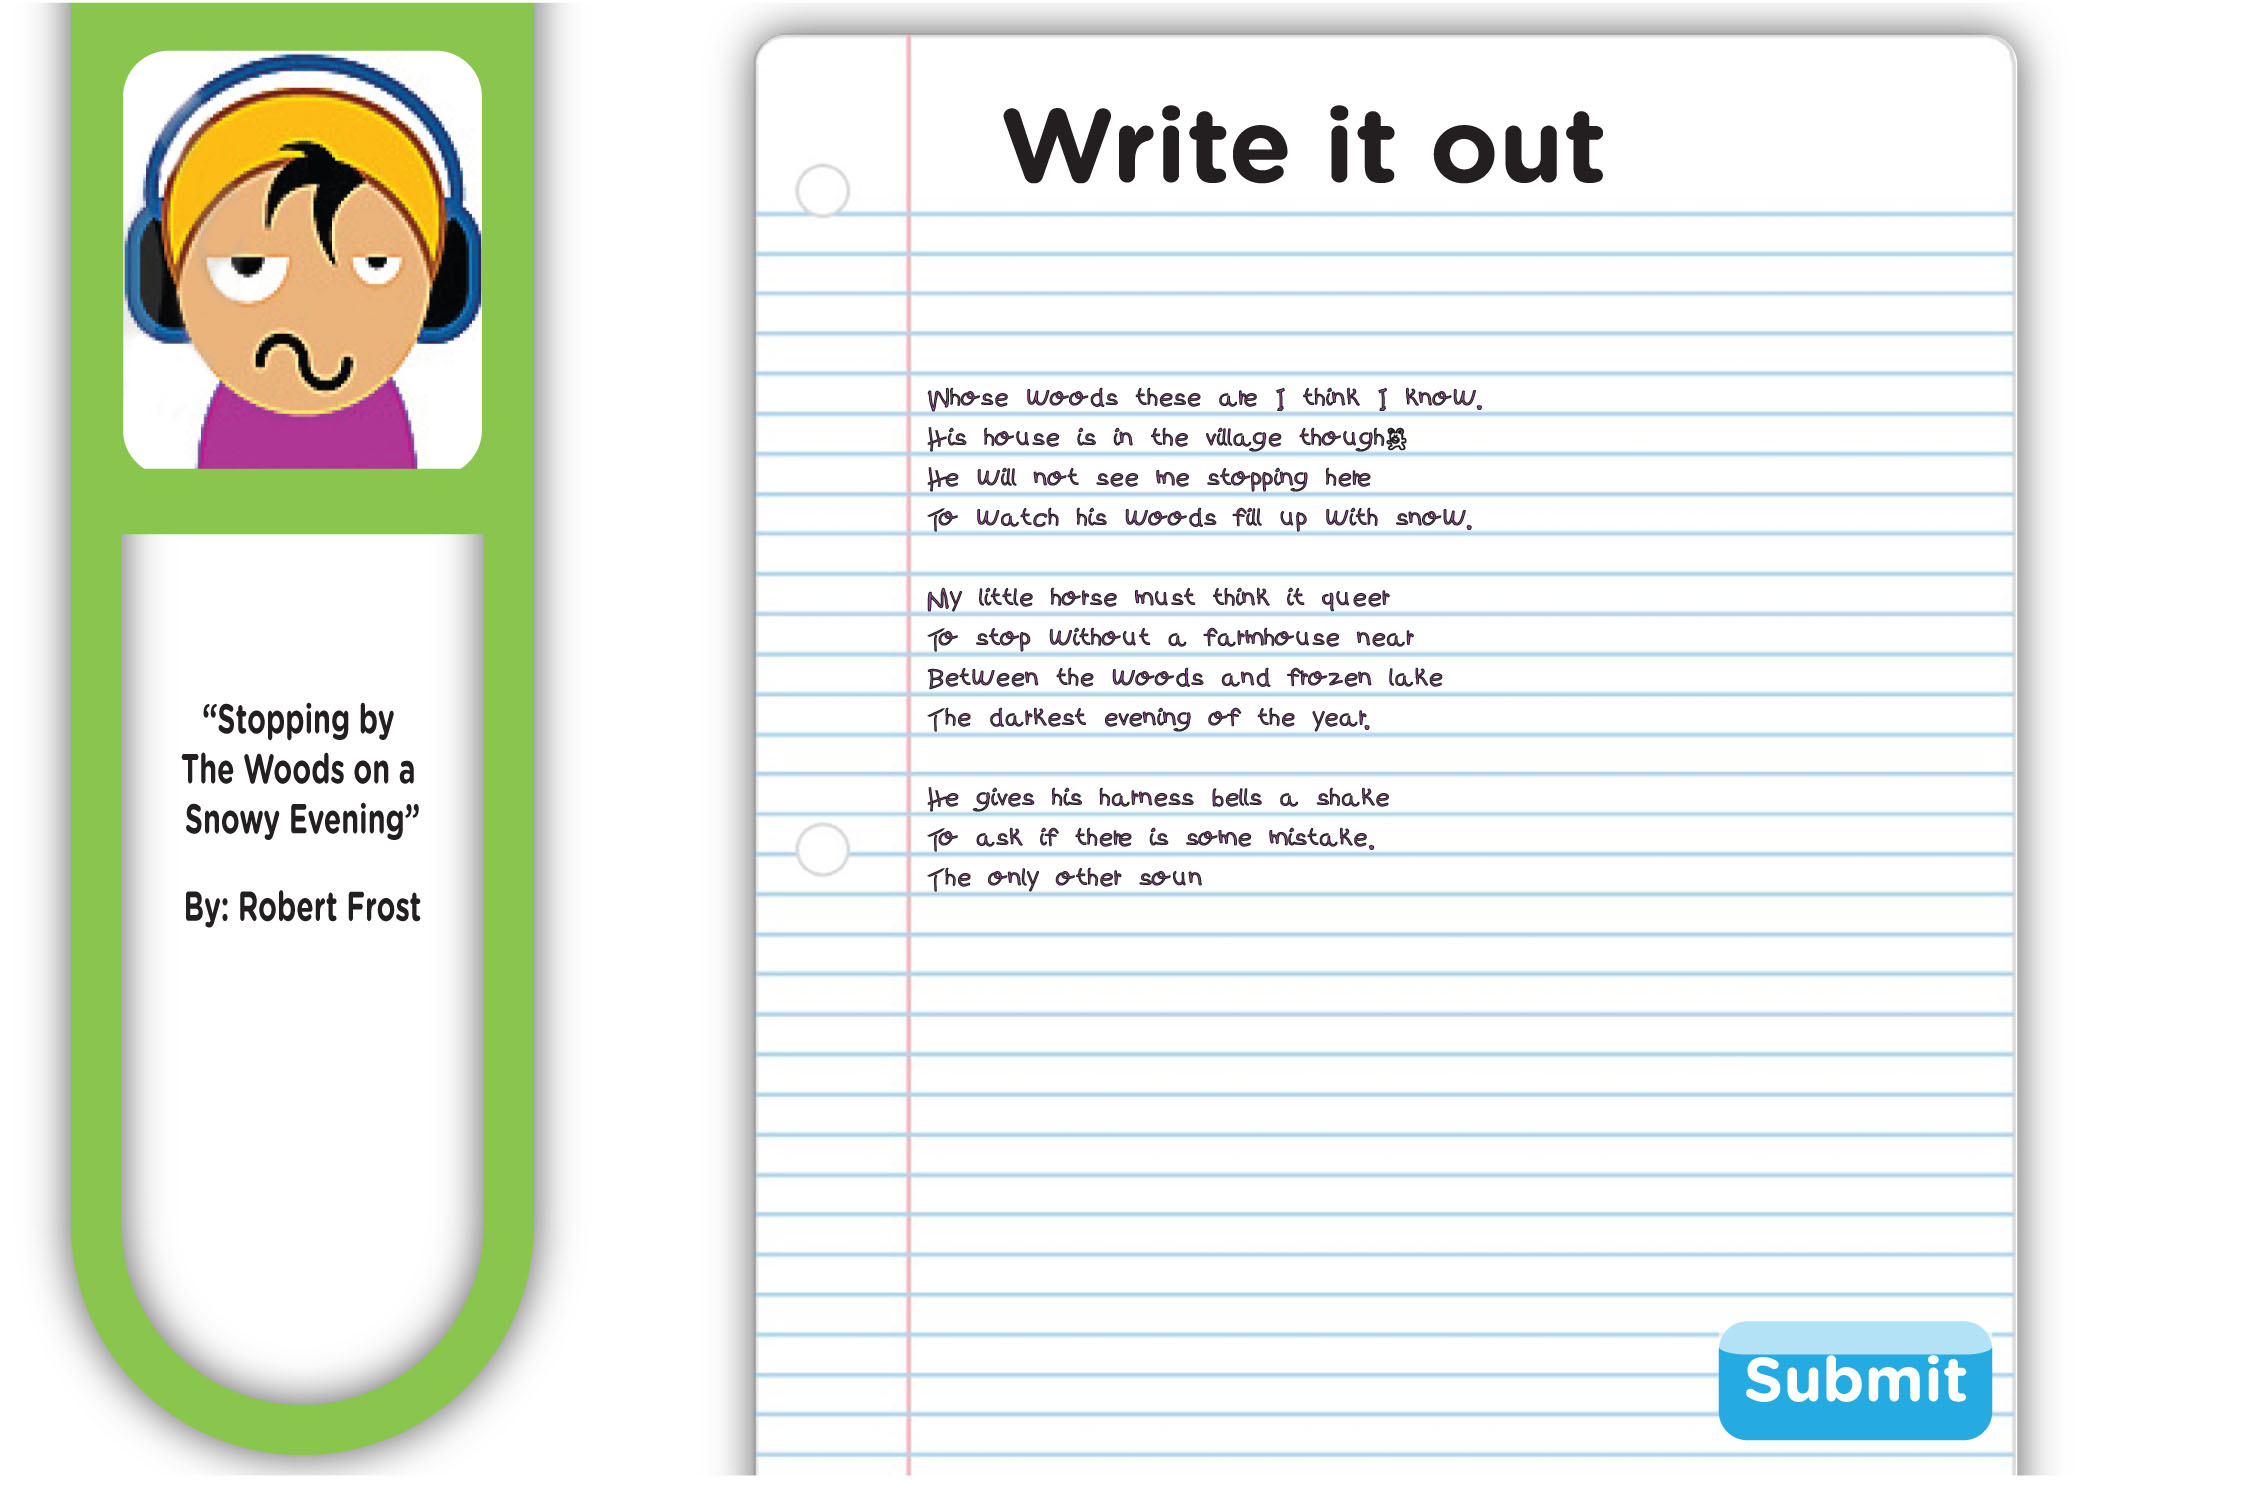 “Stopping by
The Woods on a
Snowy Evening”
By: Robert Frost
Write it out
Whose woods these are I think I know.
His house is in the village though
He will not see me stopping here
To watch his woods fill up with snow.
My little horse must think it queer
To stop without a farmhouse near
Between the woods and frozen lake
The darkest evening of the year.
He gives his harness bells a shake
To ask if there is some mistake.
The only other soun
Submit